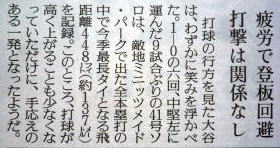 疲労で登板回避
打撃は関係なし
打球の行方を見た大谷
は、わずかに笑みを浮かべ
た。1－0の六回、中堅左に
運んだ9試合ぶりの41号ソ
ロは、敵地ミニッツメイド
・パークで出た全本塁打の
中で今季最長タイとなる飛
距離448㌳（約137㍍）
を記録。このところ、打球が
高く上がることも少なくな
っていただけに、手応えの
ある一発となったようだ。